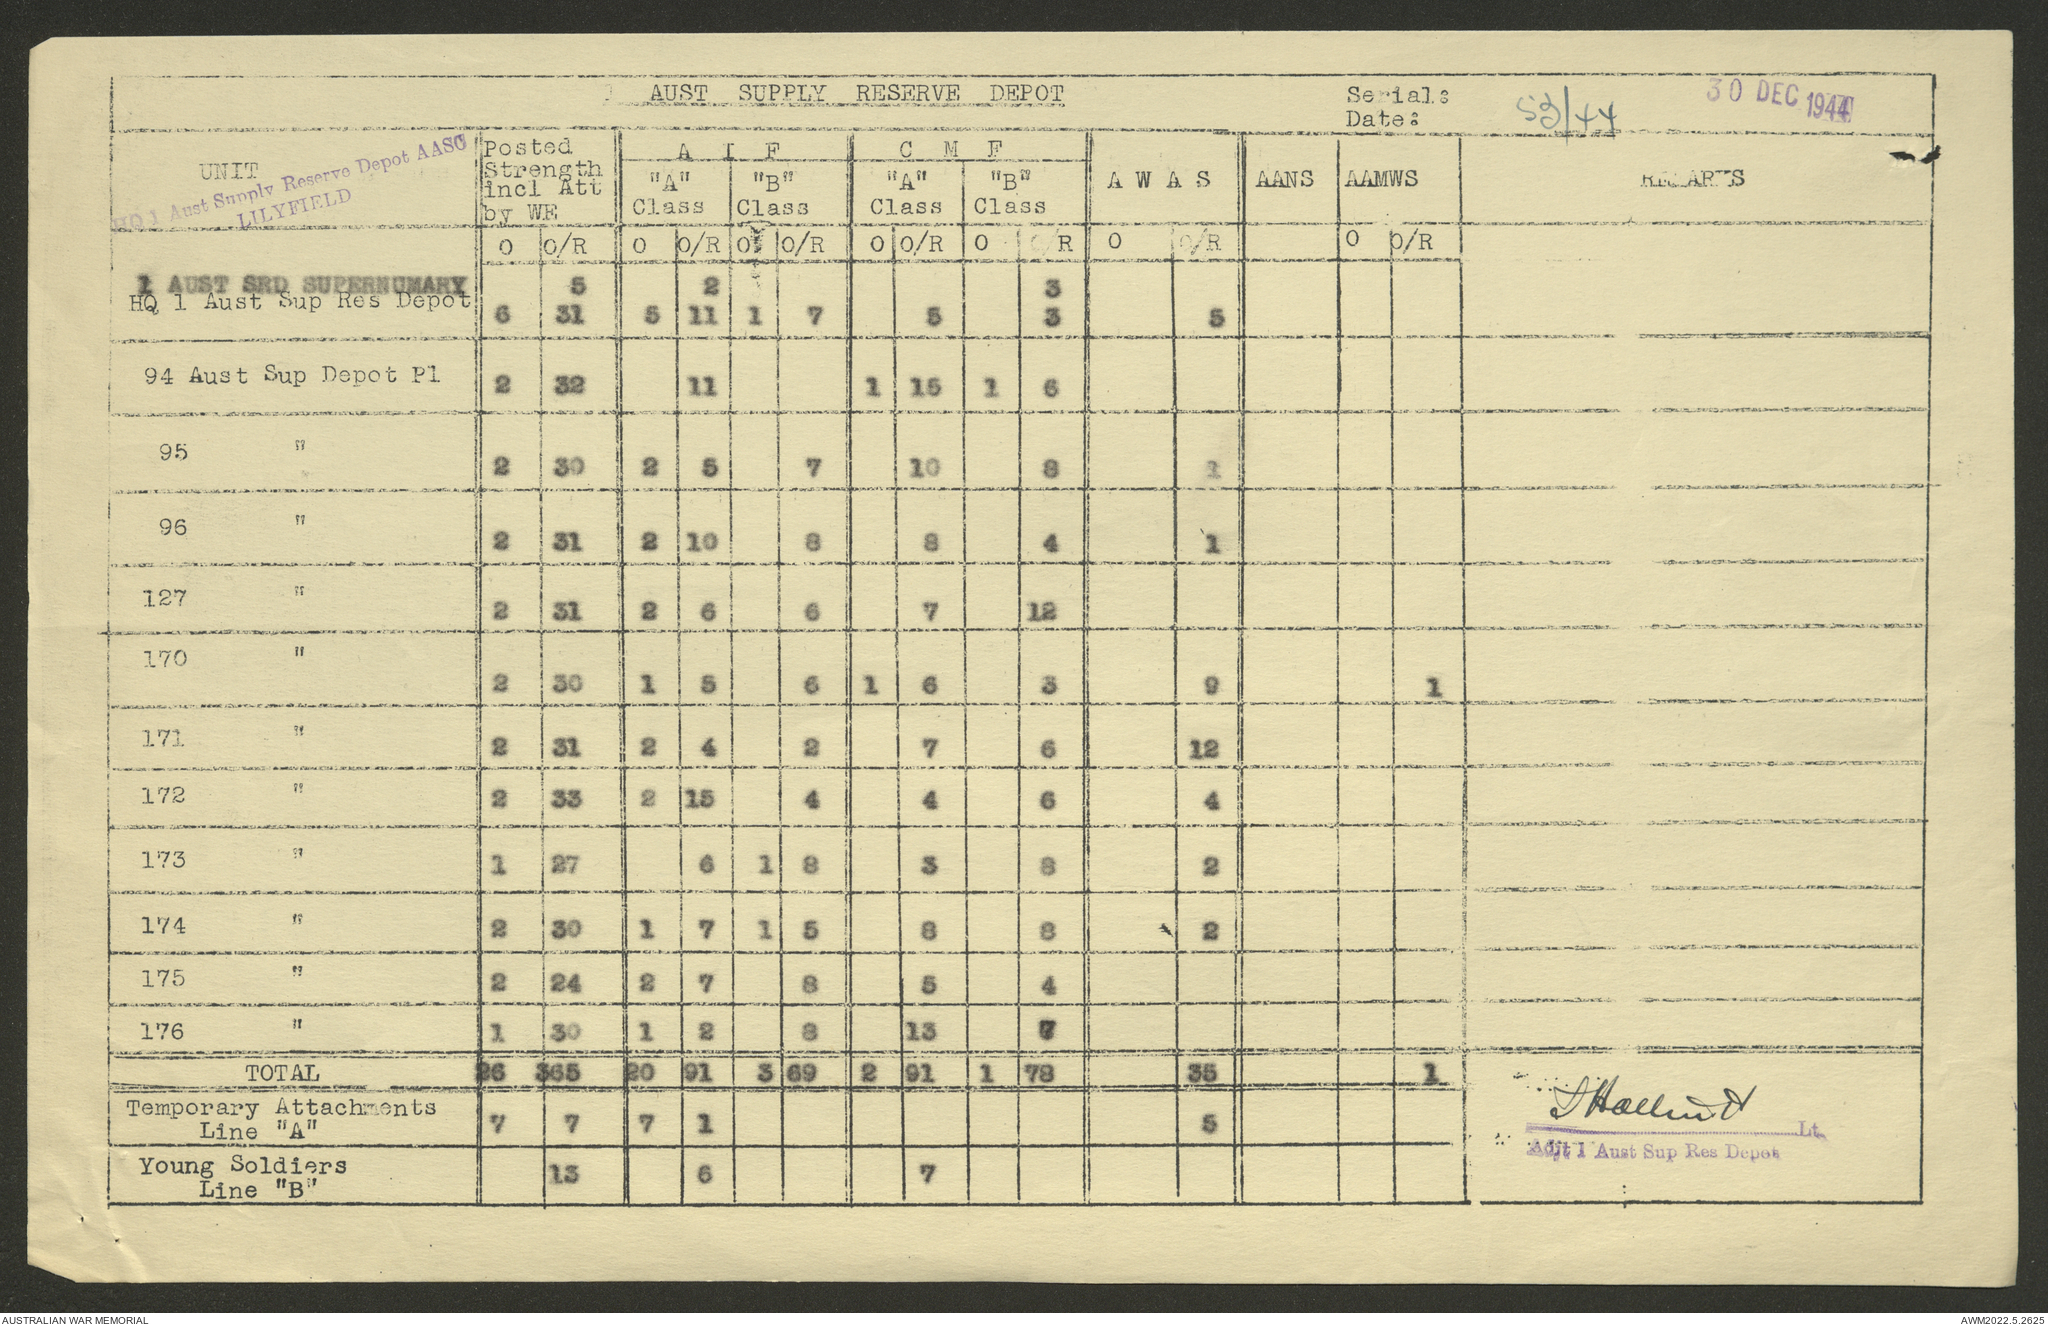 1 AUST SUPPLY RESERVE DEPOT
Serial: 53/44
Date: 30 DEC 1944
UNIT
HQ 1 Aust Supply Reserve Depot AASC
LILYFIELD
Posted Strength incl Att by WE
A I F
C M F
"A" Class "B" Class "A" Class "B" Class
A W A S AANS AAMWS REMARKS
O O/R O O/R O O/R O O/R O O/R O O/R O O/R
1 AUST SRD SUPERNUMARY 5 2 3
HQ 1 Aust Sup Res Depot 6 31 5 11 1 7 5 3 5
94 Aust Sup Depot Pl 2 32 11 1 15 1 6
95 " 2 30 2 5 7 10 8 1
96 " 2 31 2 10 8 8 4 1
127 " 2 31 2 6 6 7 12
170 " 2 30 1 5 6 1 6 3 9 1
171 " 2 31 2 4 2 7 6 12
172 " 2 33 2 15 4 4 6 4
173 " 1 27 6 1 8 3 8 2
174 " 2 30 1 7 1 5 8 8 2
175 " 2 24 2 7 8 5 4
176 " 1 30 1 2 8 13 7
TOTAL 26 365 20 91 3 69 2 91 1 78 35 1
Temporary Attachments
Line "A" 7 7 7 1 5
Young Soldiers
Line "B" 13 6 7
Lt
Adjt 1 Aust Sup Res Depot
AUSTRALIAN WAR MEMORIAL
AWM2022.5.2625